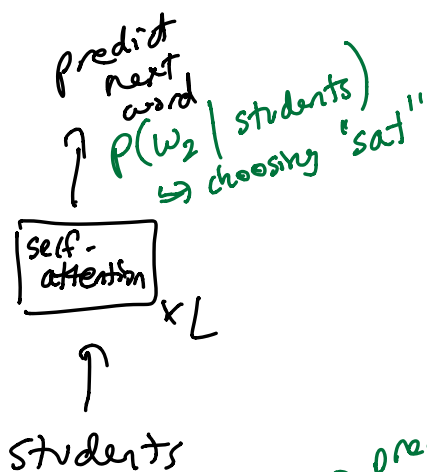 predict
next
word
P(w₂ | students)
↳ choosing "sat"
self-
attention
x L
students
pre